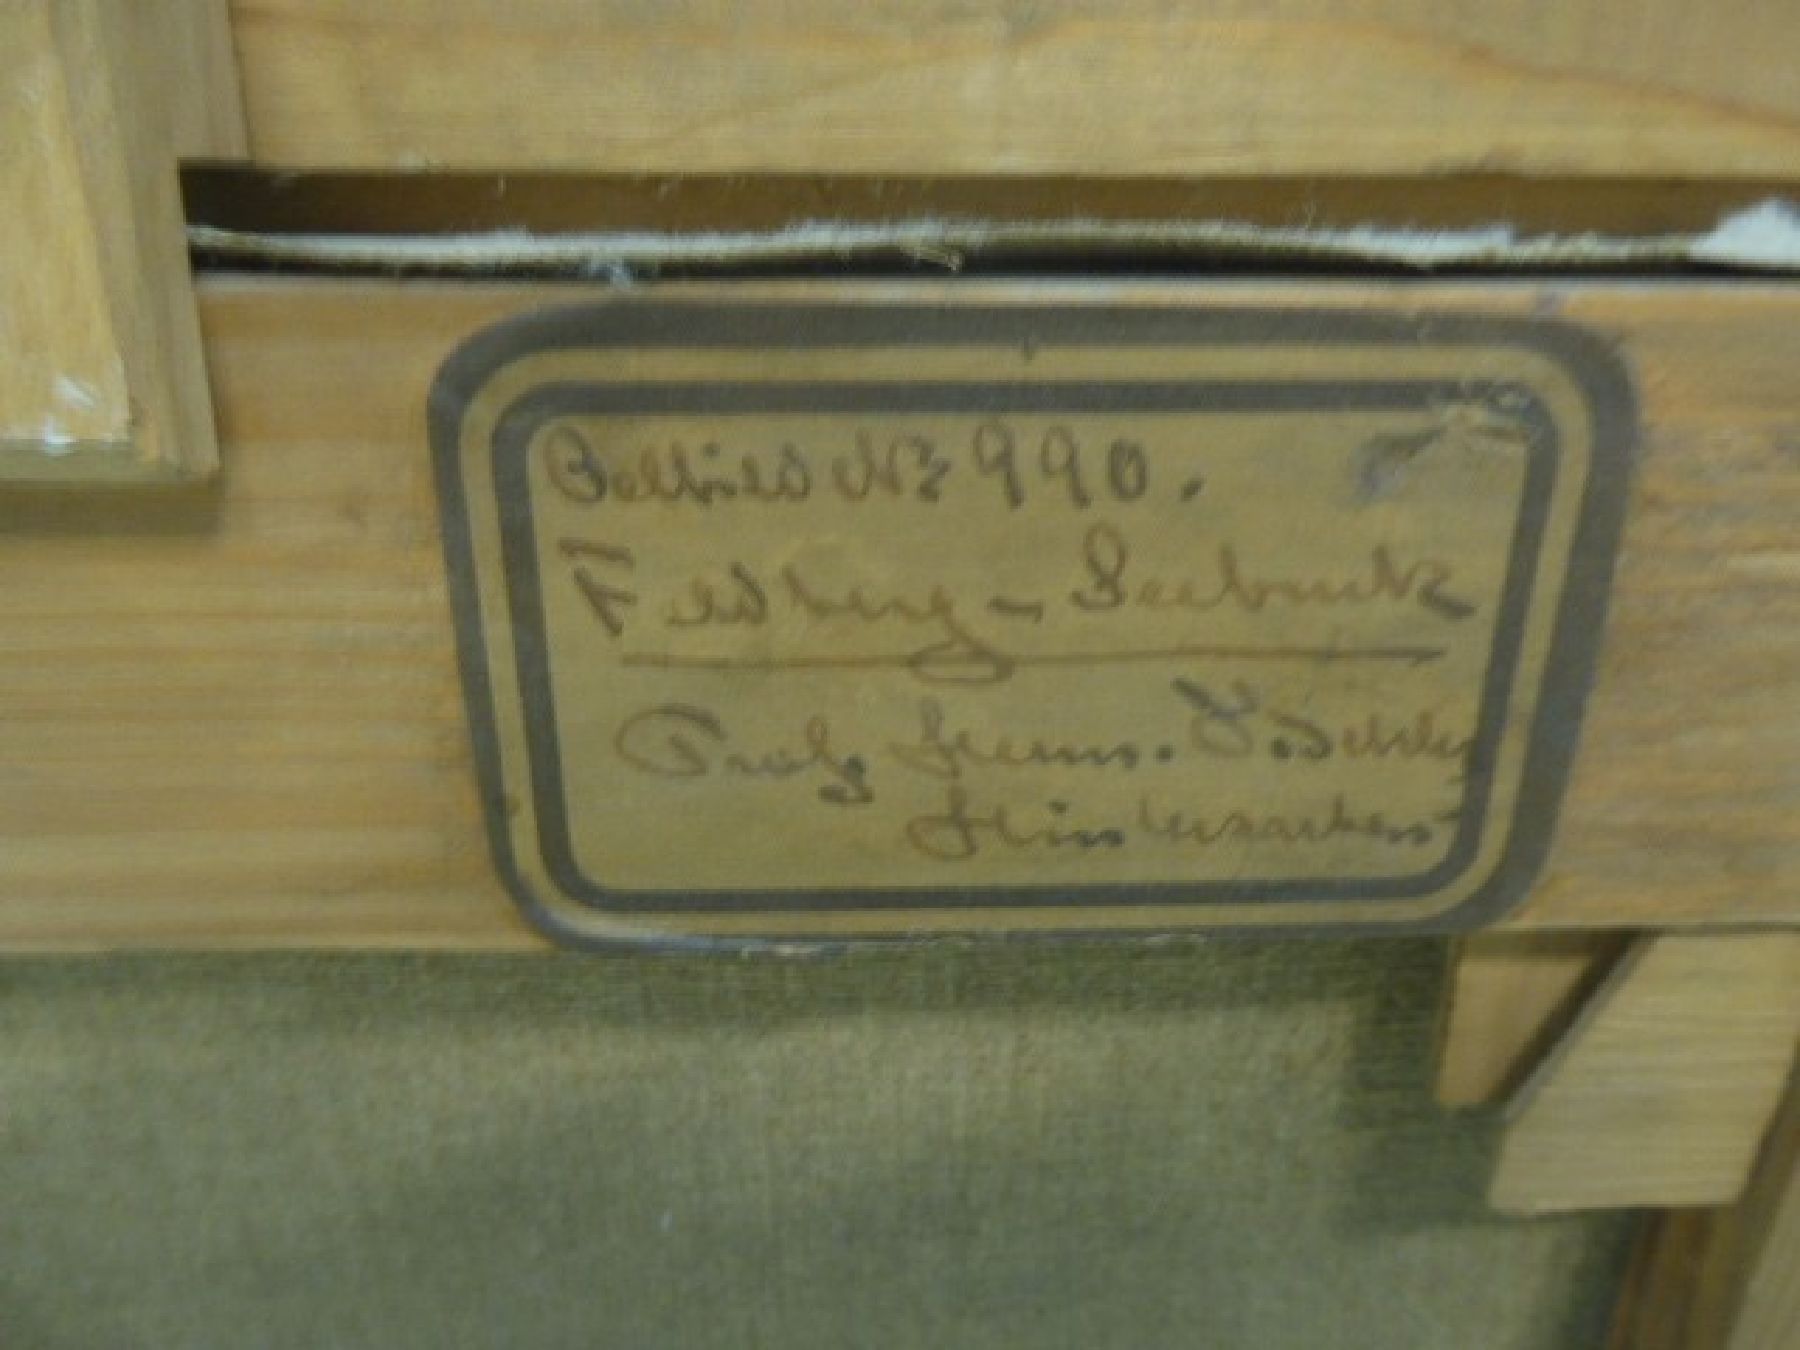 Oelbild Nr 990.
Feldberg - Seebuck
Prof. Herm. Dischler
Hinterzarten